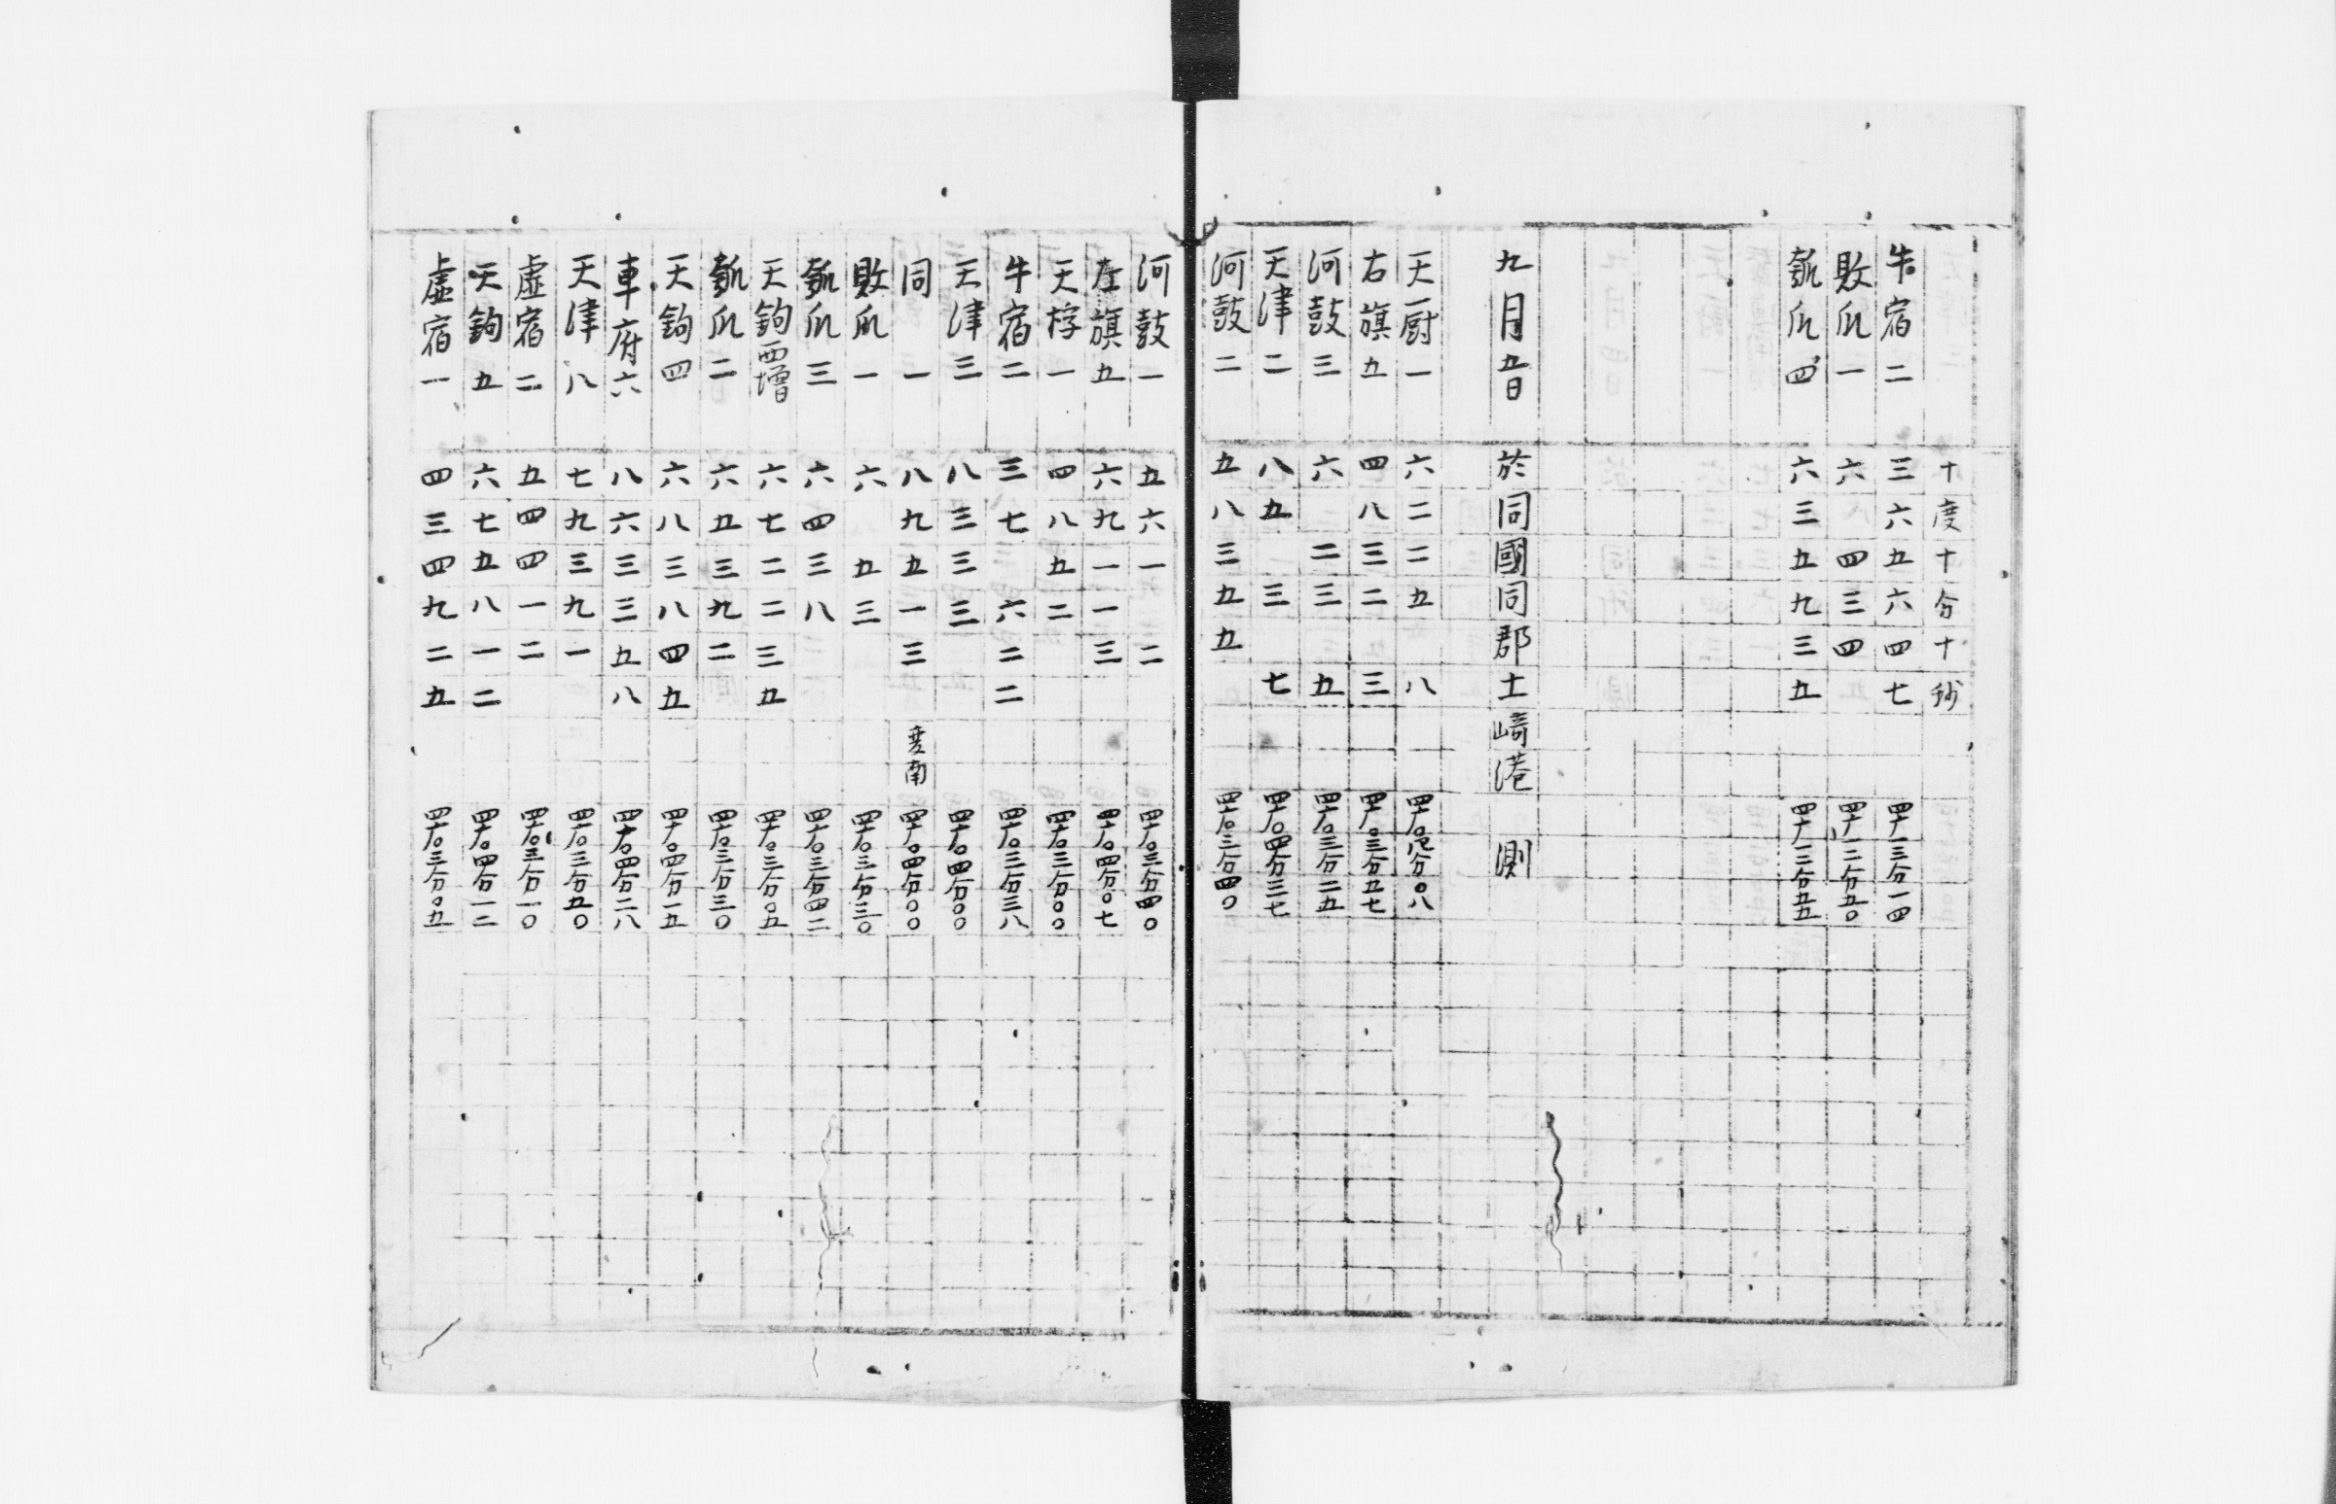 十度十分十秒
牛宿二 三六五六四七 四十一三分一四
敗瓜一 六 四三四 四十一二分五〇
瓠瓜四 六三五九三五 四十一二分五五
九月五日 於同國同郡土崎港 測
天厨一 六二二五 八 八分〇八
右旗五 四八三二 三 四十〇三分五七
河鼓三 六 二三 五 四十〇三分二五
天津二 八五 三 七 四十〇四分三七
河鼓二 五八三五五 四十〇三分四〇
河鼓一 五六一 二 四十〇三分四〇
左旗五 六九一一三 四十〇四分〇七
天桴一 四八五二 四十〇三分〇〇
牛宿二 三七 六二二 四十〇三分三八
天津三 八三三三 四十〇四分〇〇
同 一 八九五一三 変南 四十〇四分〇〇
敗瓜一 六 五三 四十〇三分三〇
瓠瓜三 六四三八 四十〇三分四二
天鉤西増 六七二二三五 四十〇三分〇五
瓠瓜二 六五三九二 四十〇三分三〇
天鉤四 六八三八四五 四十〇四分一五
車府六 八六三三五八 四十〇四分二八
天津八 七九三九一 四十〇三分五〇
虚宿二 五四四一二 四十〇三分一〇
天鉤五 六七五八一二 四十〇四分一二
虚宿一 四三四九二五 四十〇三分〇五